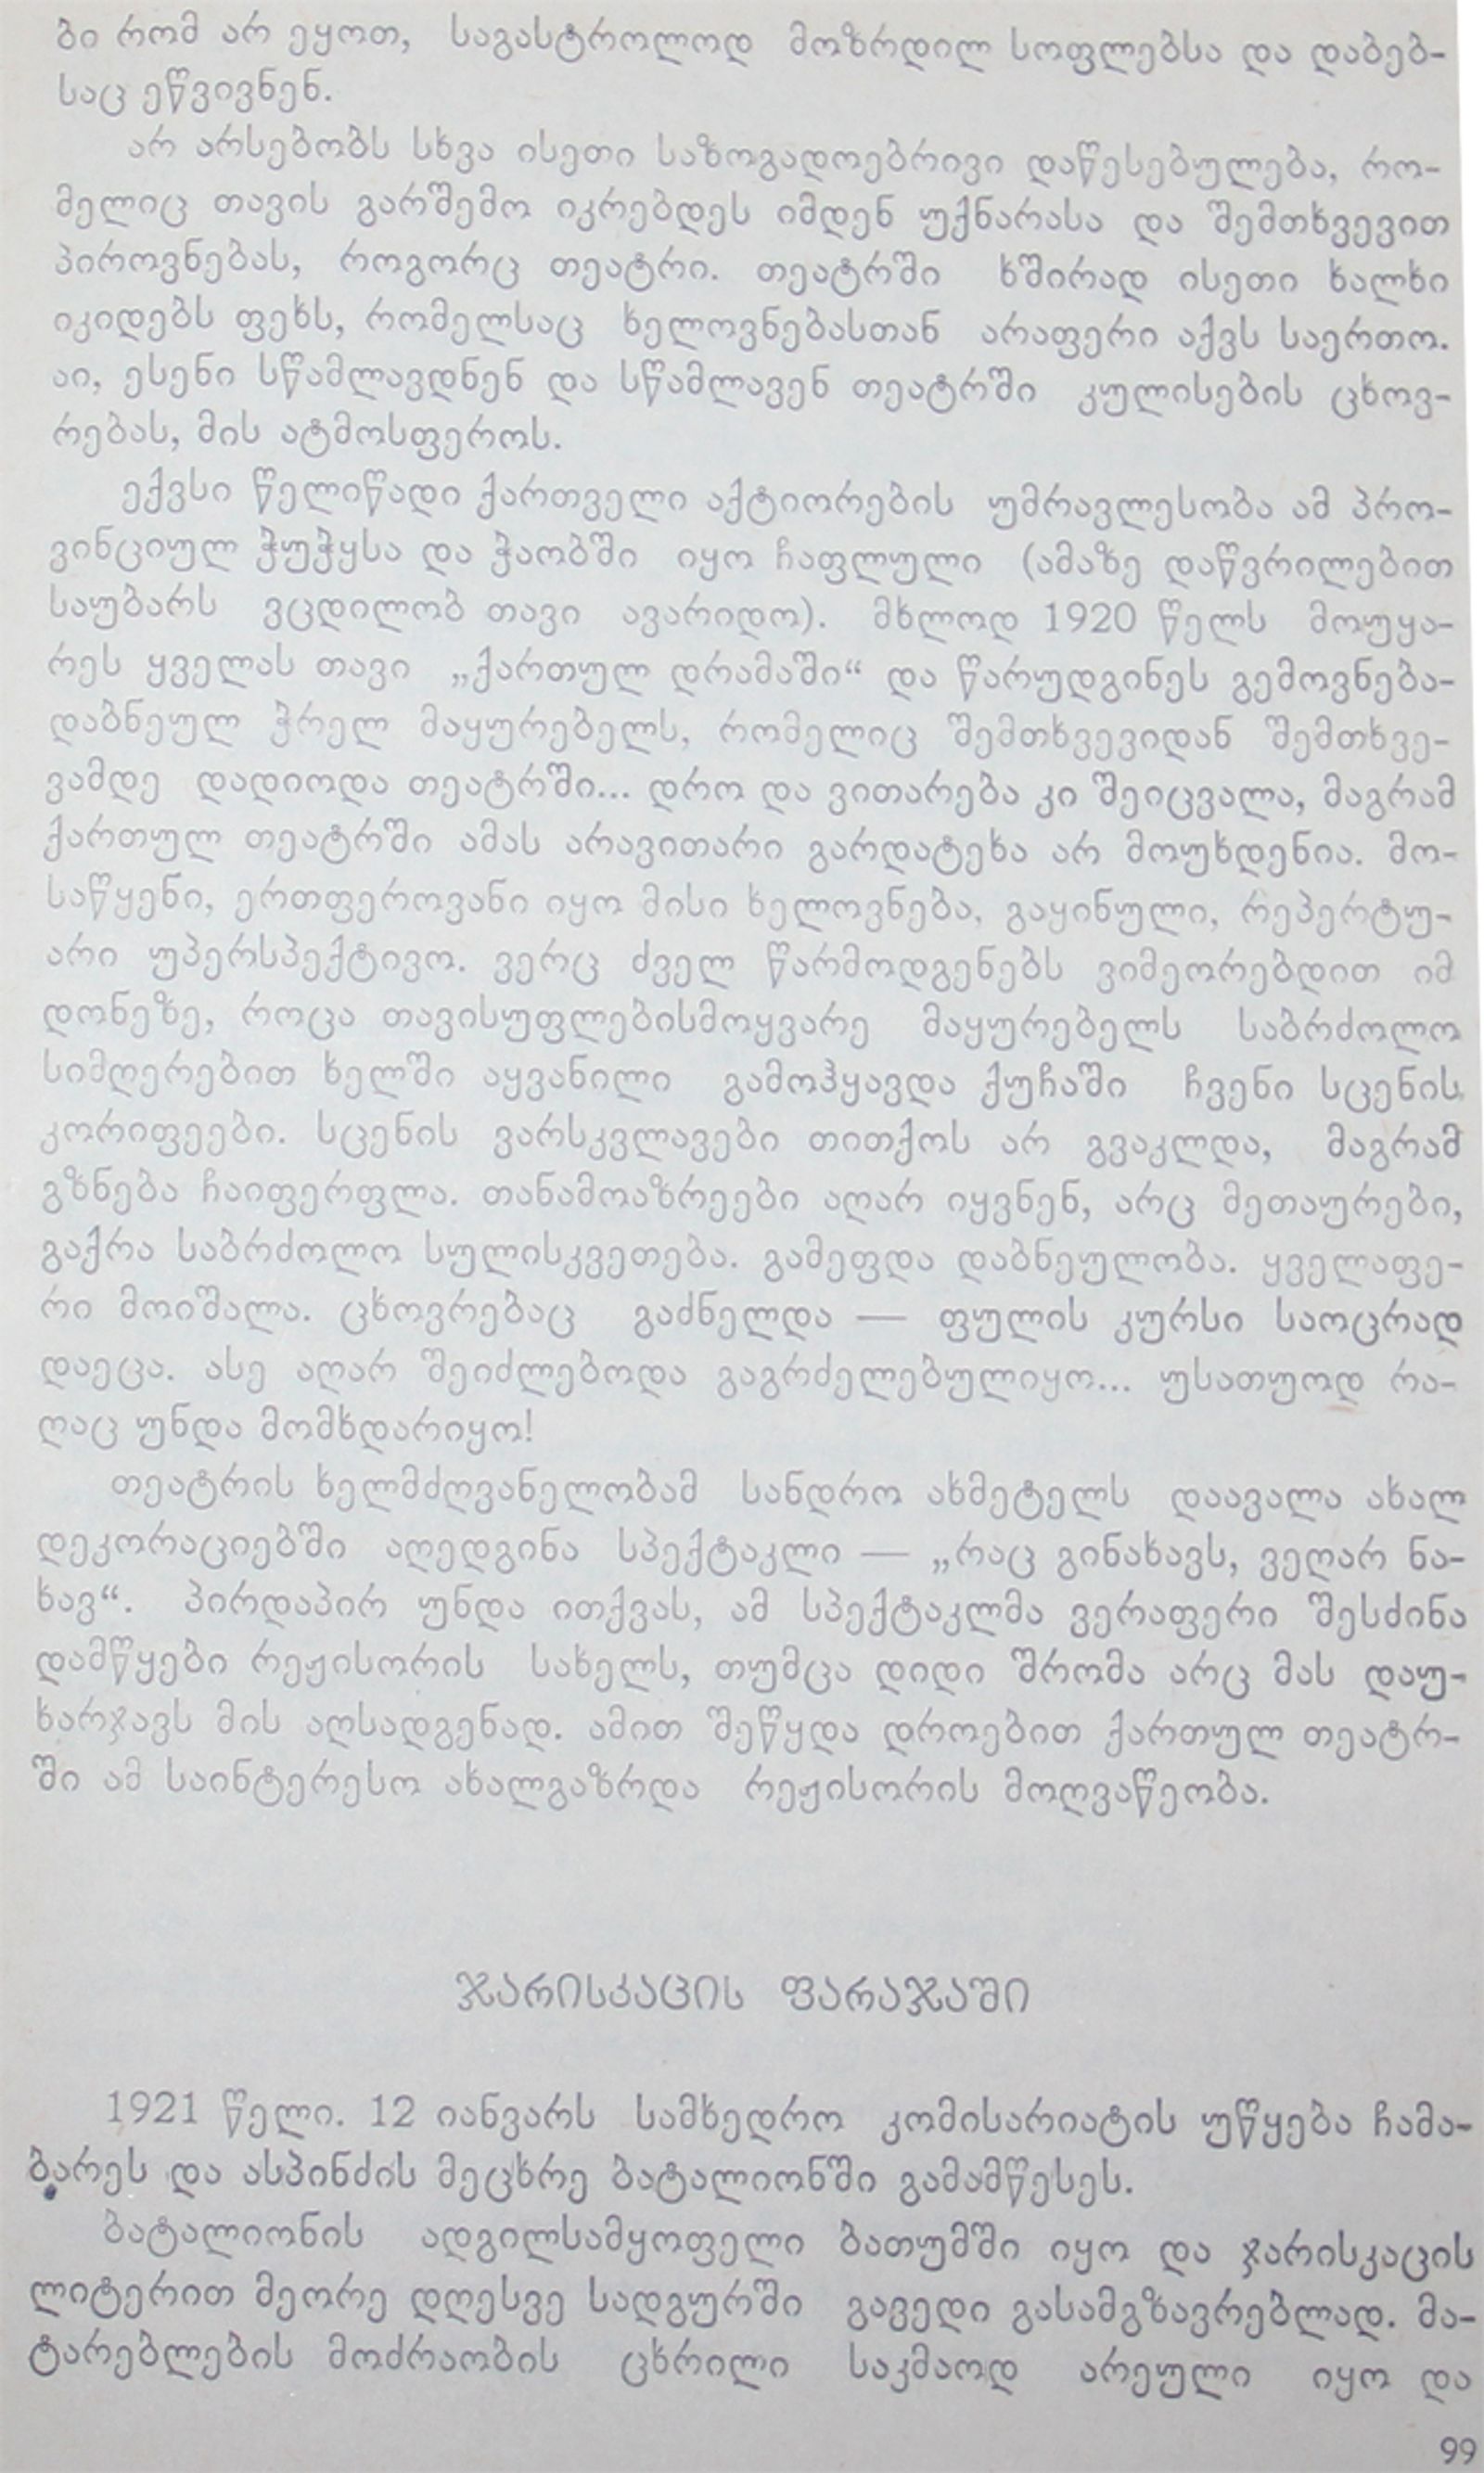 ბი რომ არ ეყოთ, საგასტროლოდ მოზრდილ სოფლებსა და დაბებ-
საც ეწვივნენ.
არ არსებობს სხვა ისეთი საზოგადოებრივი დაწესებულება, რო-
მელიც თავის გარშემო იკრებდეს იმდენ უქნარასა და შემთხვევით
პიროვნებას, როგორც თეატრი. თეატრში ხშირად ისეთი ხალხი
იკიდებს ფეხს, რომელსაც ხელოვნებასთან არაფერი აქვს საერთო.
აი, ესენი სწამლავდნენ და სწამლავენ თეატრში კულისების ცხოვ-
რებას, მის ატმოსფეროს.
ექვსი წელიწადი ქართველი აქტიორების უმრავლესობა ამ პრო-
ვინციულ ჭუჭყსა და ჭაობში იყო ჩაფლული (ამაზე დაწვრილებით
საუბარს ვცდილობ თავი ავარიდო). მხლოდ 1920 წელს მოუყა-
რეს ყველას თავი „ქართულ დრამაში“ და წარუდგინეს გემოვნება-
დაბნეულ ჭრელ მაყურებელს, რომელიც შემთხვევიდან შემთხვე-
ვამდე დადიოდა თეატრში... დრო და ვითარება კი შეიცვალა, მაგრამ
ქართულ თეატრში ამას არავითარი გარდატეხა არ მოუხდენია. მო-
საწყენი, ერთფეროვანი იყო მისი ხელოვნება, გაყინული, რეპერტუ-
არი უპერსპექტივო. ვერც ძველ წარმოდგენებს ვიმეორებდით იმ
დონეზე, როცა თავისუფლებისმოყვარე მაყურებელს საბრძოლო
სიმღერებით ხელში აყვანილი გამოჰყავდა ქუჩაში ჩვენი სცენის
კორიფეები. სცენის ვარსკვლავები თითქოს არ გვაკლდა, მაგრამ
გზნება ჩაიფერფლა. თანამოაზრეები აღარ იყვნენ, არც მეთაურები,
გაქრა საბრძოლო სულისკვეთება. გამეფდა დაბნეულობა. ყველაფე-
რი მოიშალა. ცხოვრებაც გაძნელდა — ფულის კურსი საოცრად
დაეცა. ასე აღარ შეიძლებოდა გაგრძელებულიყო... უსათუოდ რა-
ღაც უნდა მომხდარიყო!
თეატრის ხელმძღვანელობამ სანდრო ახმეტელს დაავალა ახალ
დეკორაციებში აღედგინა სპექტაკლი — „რაც გინახავს, ვეღარ ნა-
ხავ“. პირდაპირ უნდა ითქვას, ამ სპექტაკლმა ვერაფერი შესძინა
დამწყები რეჟისორის სახელს, თუმცა დიდი შრომა არც მას დაუ-
ხარჯავს მის აღსადგენად. ამით შეწყდა დროებით ქართულ თეატრ-
ში ამ საინტერესო ახალგაზრდა რეჟისორის მოღვაწეობა.
ჯარისკაცის ფარაჯაში
1921 წელი. 12 იანვარს სამხედრო კომისარიატის უწყება ჩამა-
ბარეს და ასპინძის მეცხრე ბატალიონში გამამწესეს.
ბატალიონის ადგილსამყოფელი ბათუმში იყო და ჯარისკაცის
ლიტერით მეორე დღესვე სადგურში გავედი გასამგზავრებლად. მა-
ტარებლების მოძრაობის ცხრილი საკმაოდ არეული იყო და
99